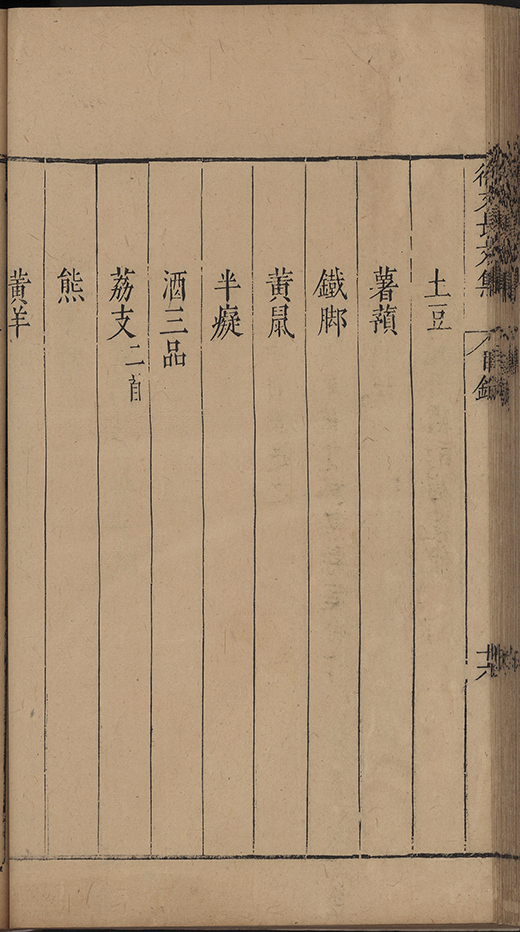 徐文長文集
目錄
十六
土豆
薯蕷
鐵脚
黃鼠
半癡
酒三品
荔支二首
熊
黃羊